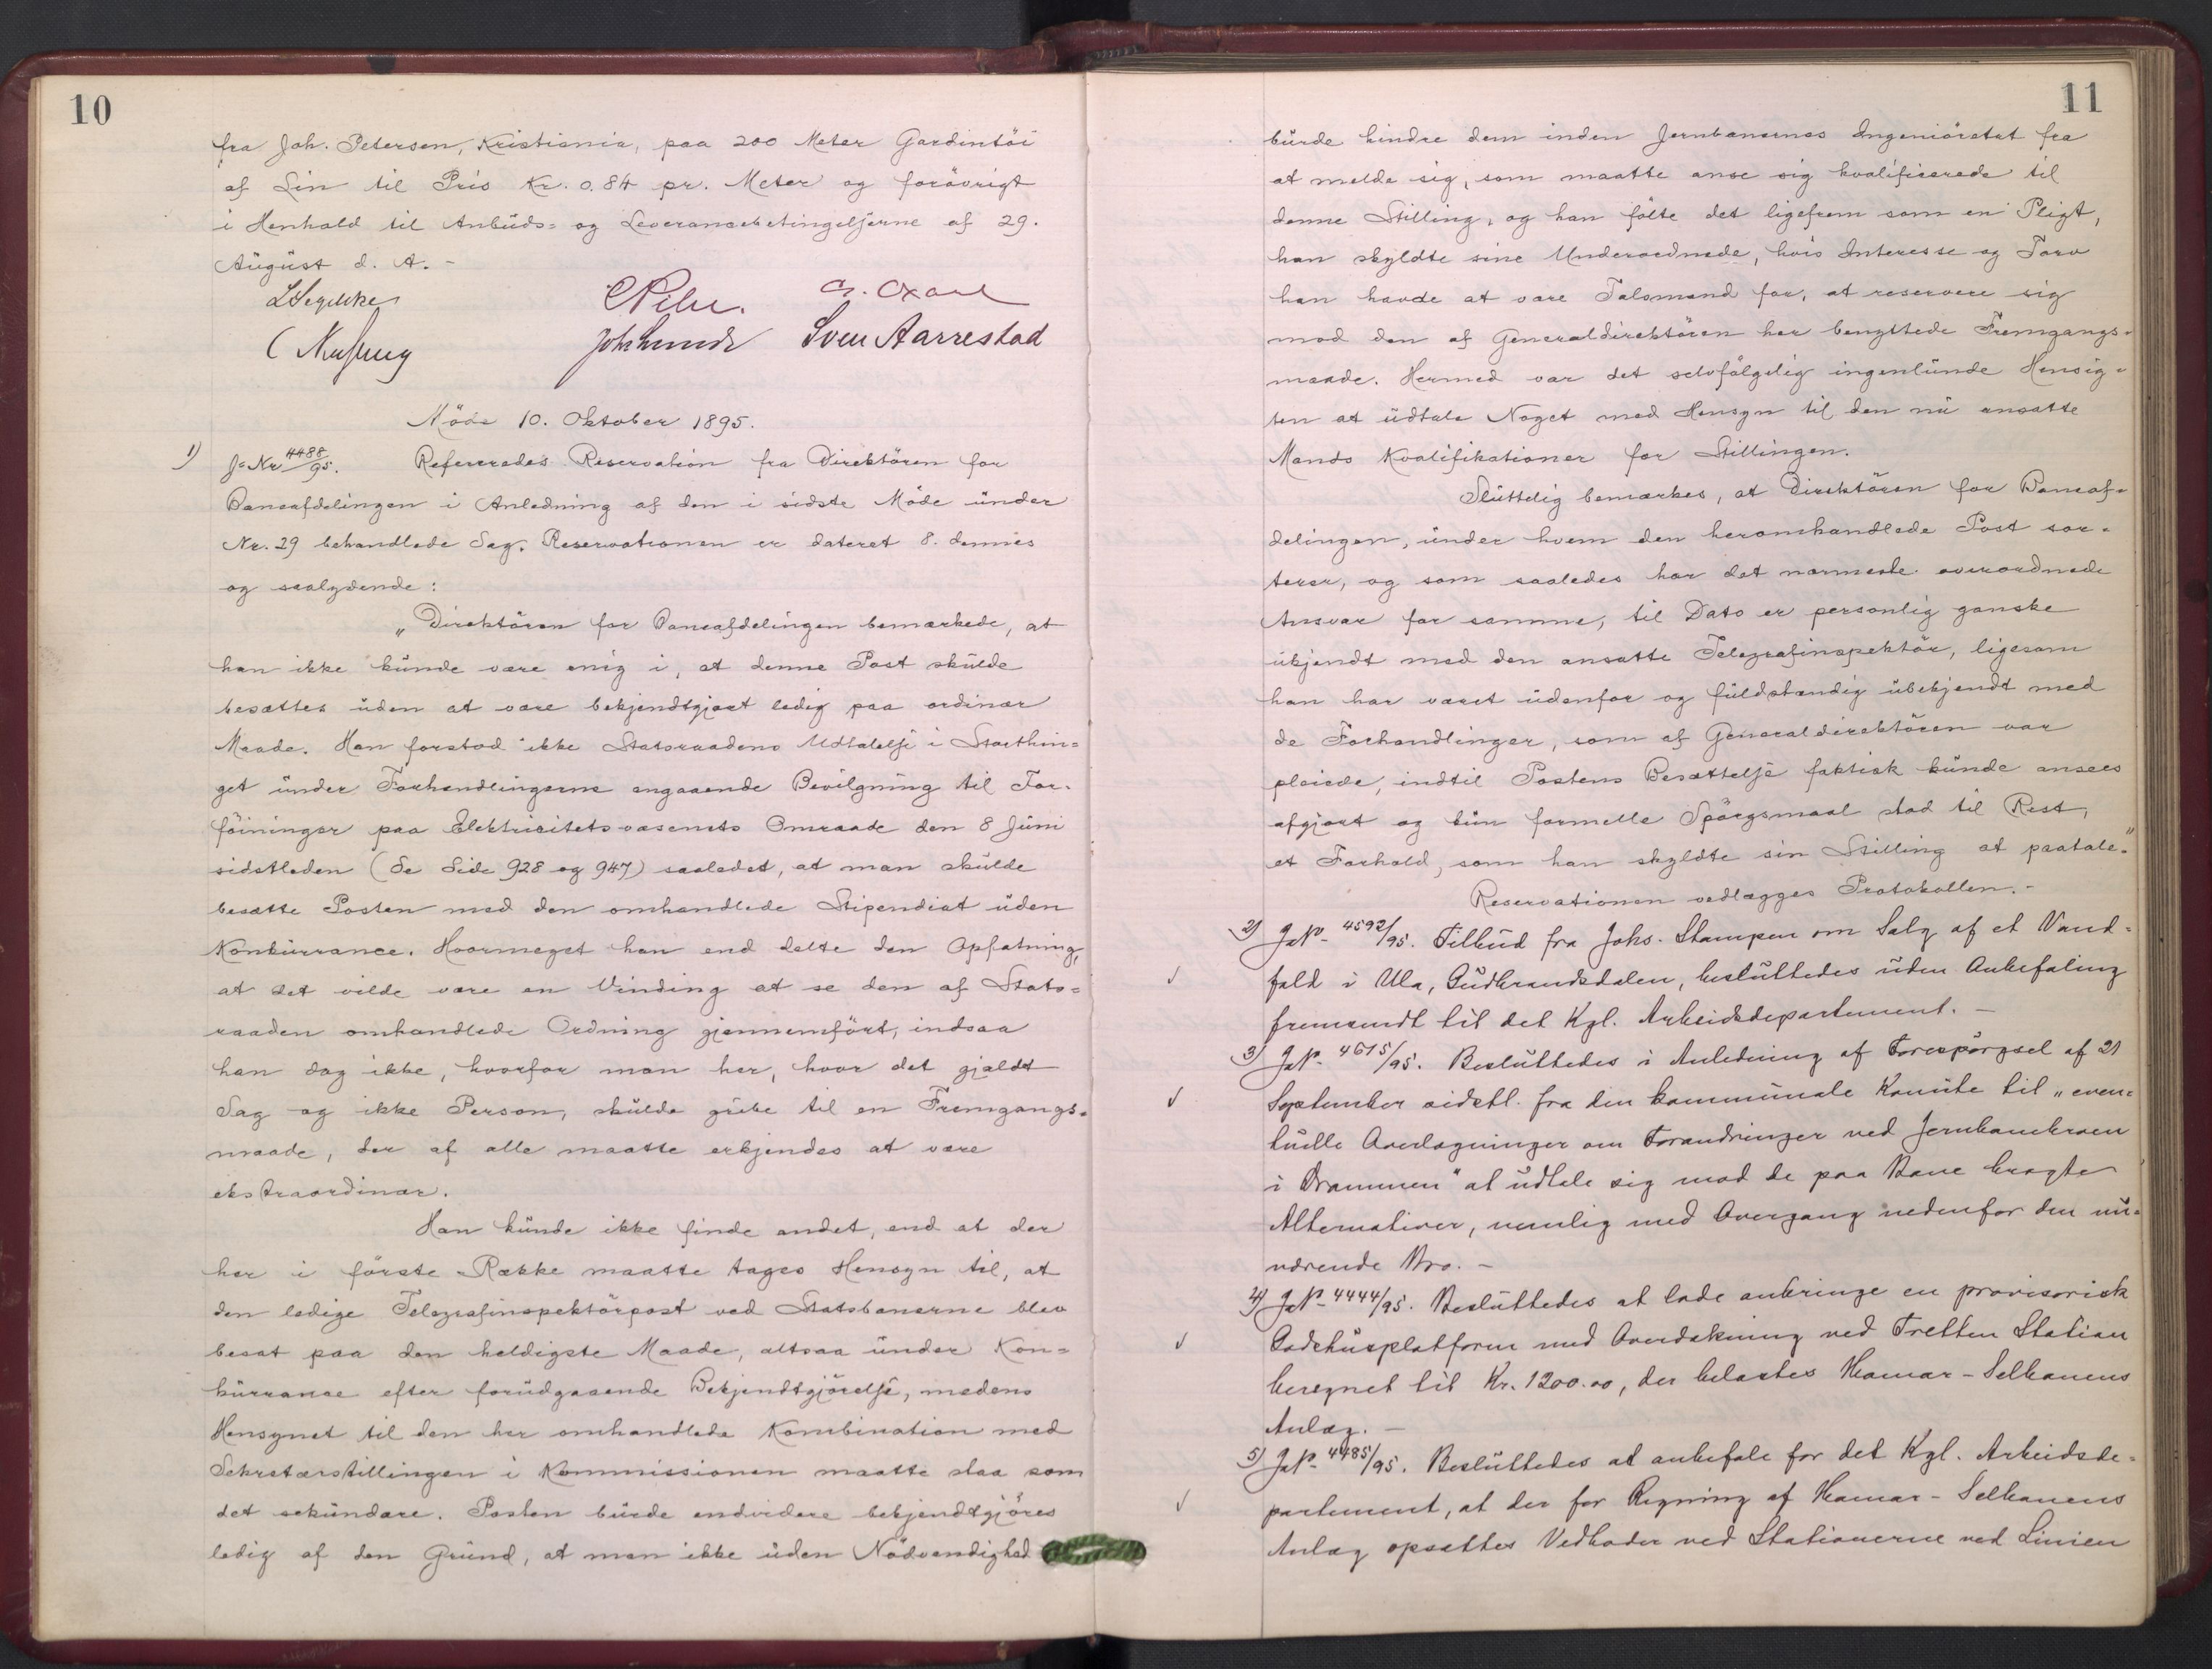 10
fra Joh. Petersen, Kristiania, paa 200 Meter Gardintöi
af Lin til Pris Kr. 0.84 pr. Meter og forövrigt
i Henhold til Anbuds- og Leverancebetingelserne af 29.
August d. A. -
Sven Aarrestad
Möde 10. Oktober 1895.
1) J-Nr 4488/95. Refereredes Reservation fra Direktören for
Baneafdelingen i Anledning af den i sidste Möde under
Nr. 29 behandlede Sag. Reservationen er dateret 8. dennes
og saalydende:
„Direktören for Baneafdelingen bemærkede, at
han ikke kunde være enig i, at denne Post skulde
besættes uden at være bekjendtgjort ledig paa ordinær
Maade. Han forstod ikke Statsraadens Udtalelse i Storthin=
get under Forhandlingerne angaaende Bevilgning til For=
föininger paa Elektricitetsvæsenets Omraade den 8 Juni
sidstleden (Se Side 928 og 947) saaledes, at man skulde
besætte Posten med den omhandlede Stipendiat uden
Konkurrance. Hvormeget han end delte den Opfatning,
at det vilde være en Vinding at se den af Stats=
raaden omhandlede Ordning gjennemfört, indsaa
han dog ikke, hvorfor man her, hvor det gjaldt
Sag og ikke Person, skulde gribe til en Fremgangs=
maade, der af alle maatte erkjendes at være
ekstraordinær.
Han kunde ikke finde andet, end at der
her i förste Række maatte tages Hensyn til, at
den ledige Telegrafinspektörpost ved Statsbanerne blev
besat paa den heldigste Maade, altsaa under Kon=
kurrance efter forudgaaende Bekjendtgjörelse, medens
Hensynet til den her omhandlede Kombination med
Sekretærstillingen i Kommissionen maatte staa som
det sekundære. Posten burde endvidere bekjendtgjöres
ledig af den Grund, at man ikke uden Nödvendighed
11
burde hindre dem inden Jernbanernes Ingeniöretat fra
at melde sig, som maatte anse sig kvalificerede til
denne Stilling, og han fölte det ligefrem som en Pligt,
han skyldte sine Underordnede, hvis Interesse og Tarv
han havde at være Talsmand for, at reservere sig
mod den af Generaldirektören her benyttede Fremgangs=
maade. Hermed var det selvfölgelig ingenlunde Hensig=
ten at udtale Noget med Hensyn til den nu ansatte
Mands Kvalifikationer for Stillingen.
Sluttelig bemærkes, at Direktören for Baneaf=
delingen, under hvem den heromhandlede Post sor=
terer, og som saaledes har det nærmeste overordnede
Ansvar for samme, til Dato er personlig ganske
ukjendt med den ansatte Telegrafinspektör, ligesom
han har været udenfor og fuldstændig ubekjendt med
de Forhandlinger, som af Generaldirektören var
pleiede, indtil Postens Besættelse faktisk kunde ansees
afgjort og kun formelle Spörgsmaal stod til Rest,
et Forhold, som han skyldte sin Stilling at paatale."
Reservationen vedlægges Protokollen. -
2) JNo 4592/95. Tilbud fra Johs. Stampen om Salg af et Vand=
fald i Ula, Gudbrandsdalen, besluttedes uden Anbefaling
fremsendt til det Kgl. Arbeidsdepartement. -
3) JNo 4615/95. Besluttedes i Anledning af Forespörgsel af 21
September sidstl. fra den kommunale Komite til „even=
tuelle Overlægninger om Forandringer ved Jernbanebroen
i Drammen" at udtale sig mod de paa Bane bragte
Alternativer, nemlig med Overgang nedenfor den nu=
værende Bro. -
4) JNo 4444/95. Besluttedes at lade anbringe en provisorisk
Godshusplatform med Overdækning ved Tretten Station
beregnet til Kr. 1200.00, der belastes Hamar-Selbanens
Anlæg. -
5) JNo 4485/95. Besluttedes at anbefale for det Kgl. Arbeidsde=
partement, at der for Regning af Hamar-Selbanens
Anlæg opsættes Vedboder ved Stationerne ved Linien